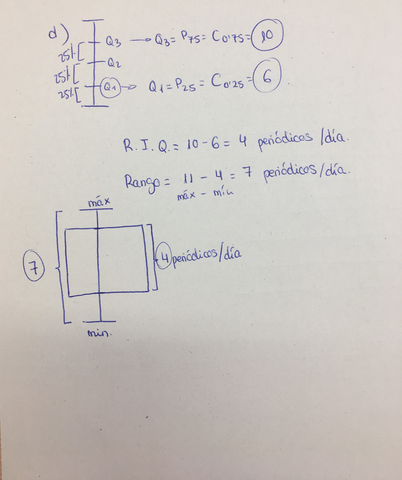 d)
Q3 → Q3 = P75 = C0'75 = 10
25%
Q2
25%
Q1 → Q1 = P25 = C0'25 = 6
25%
R.I.Q. = 10 - 6 = 4 periódicos /día.
Rango = 11 - 4 = 7 periódicos/día.
máx - mín
máx
7
4 periódicos/día
min.